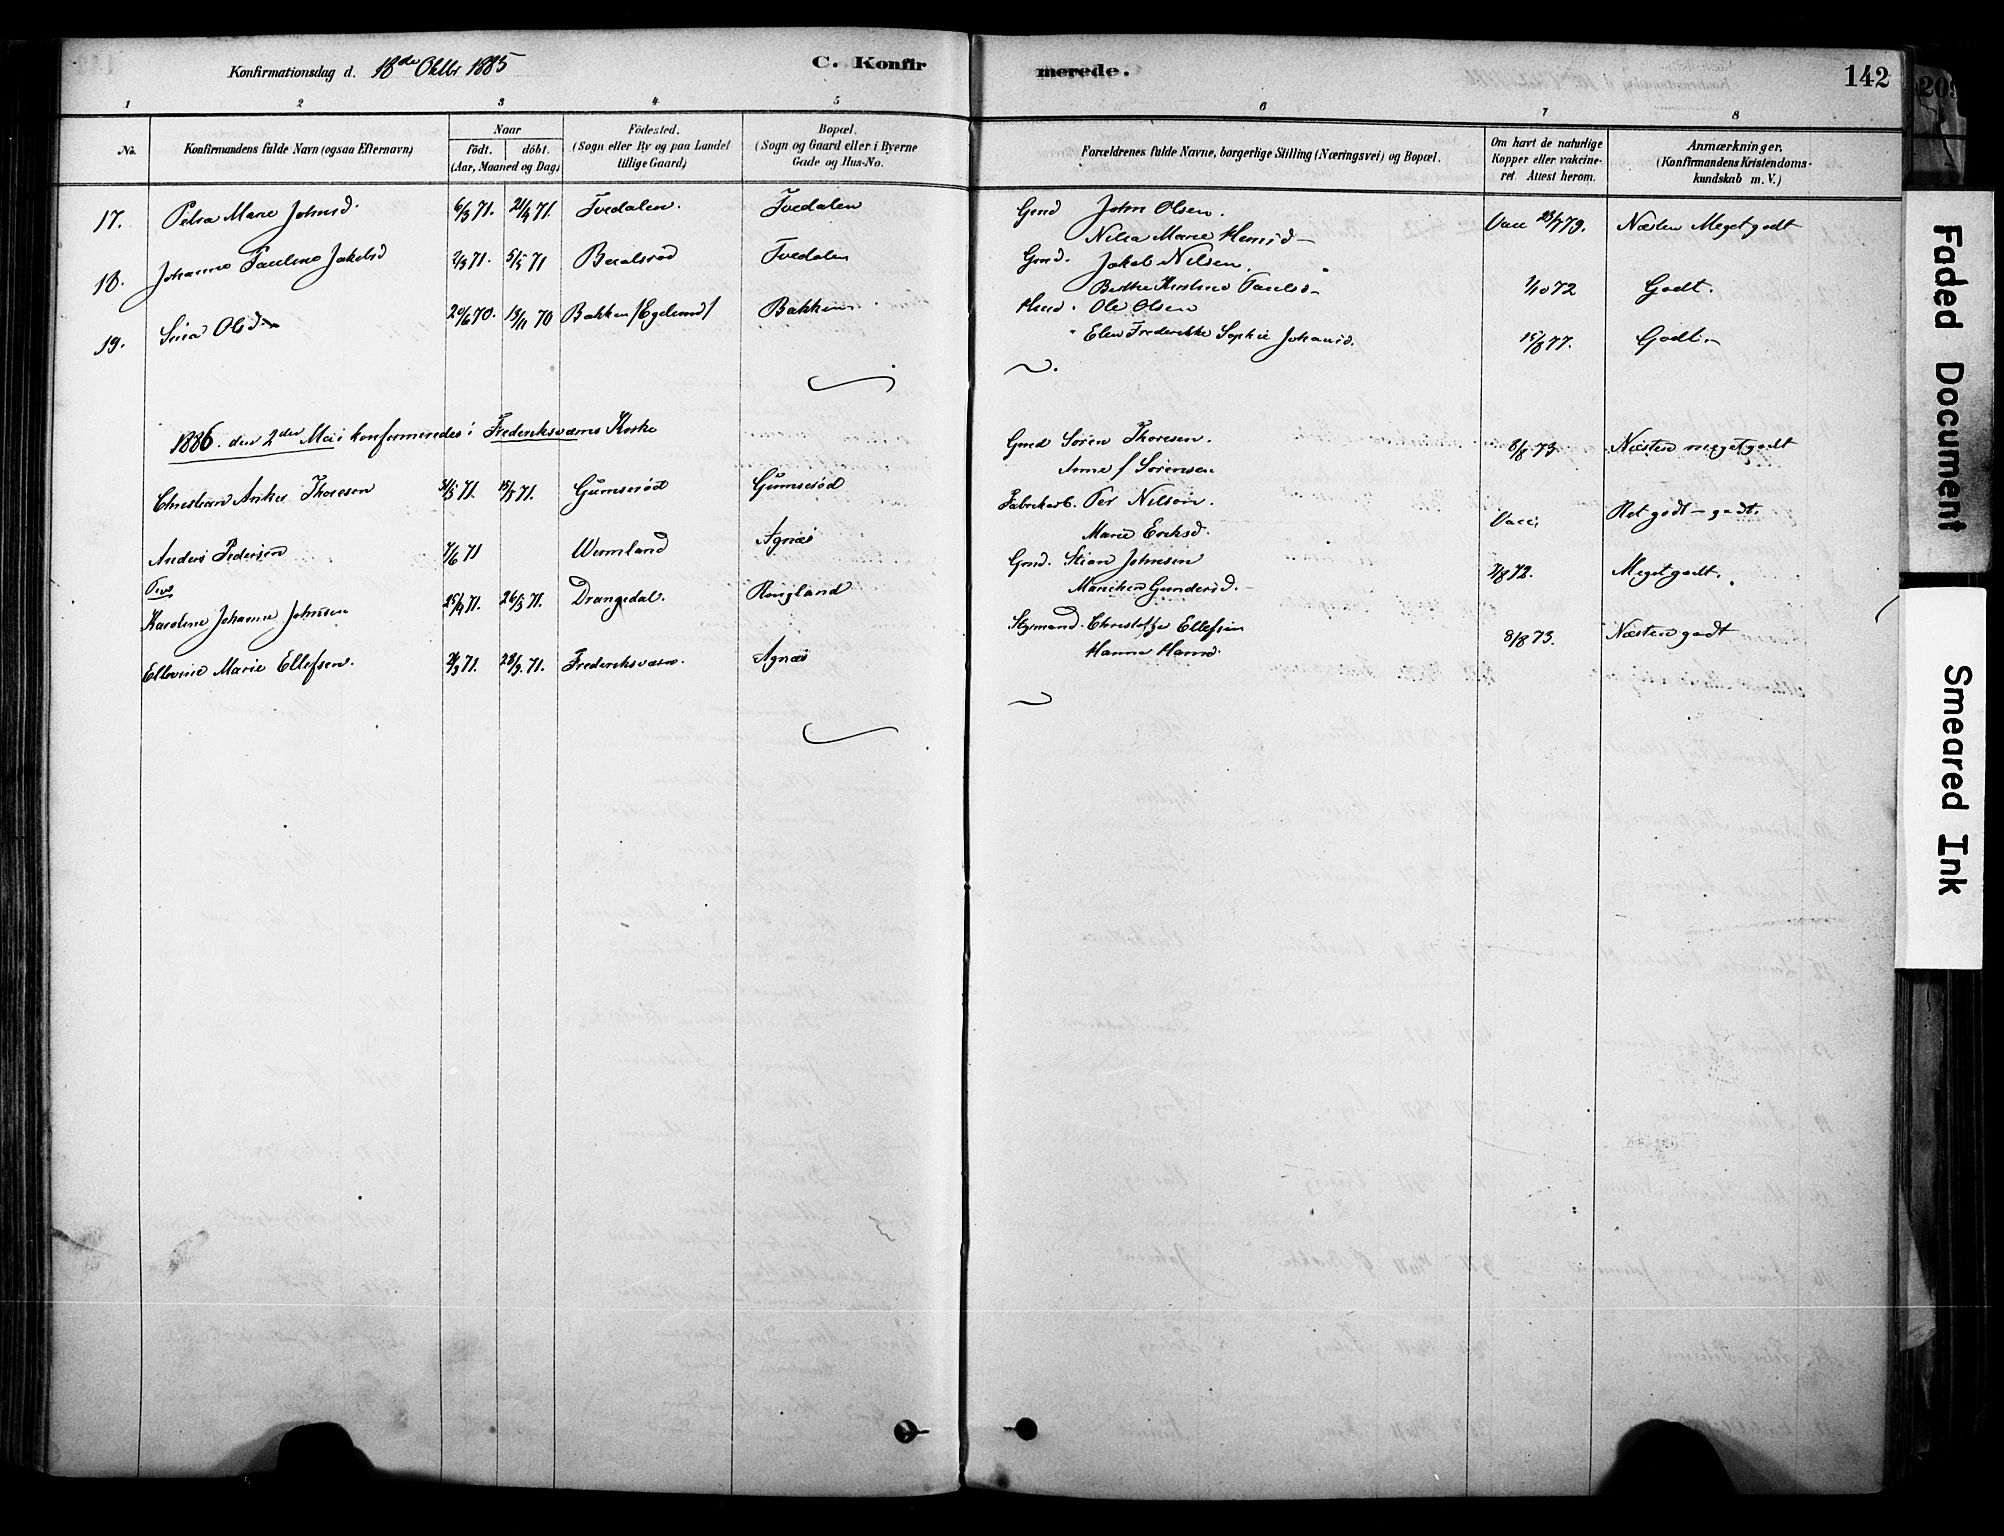 Konfirmationsdag d. 18de Oktbr 1885
C. Konfirmerede.
142
1 2 3 4 5 6 7 8
No.
Konfirmandens fulde Navn (ogsaa Efternavn)
Naar
födt. döbt.
(Aar, Maaned og Dag)
Födested.
(Sogn eller By og paa Landet
tillige Gaard)
Bopæl.
(Sogn og Gaard eller i Byerne
Gade og Hus-No.
Forældrenes fulde Navne, borgerlige Stilling (Næringsvei) og Bopæl.
Om havt de naturlige
Kopper eller vakcine-
ret. Attest herom.
Anmærkninger.
(Konfirmandens Kristendoms-
kundskab m. V.)
17. Petra Marie Johnsd. 6/3 71. 21/4 71. Tvedalen. Tvedalen Gmd John Olsen. Vacc 23/7 79. Næsten Meget godt
Nilia Marie Hansd
18. Johanne Pauline Jakobsd 2/3 71. 5/5 71 Tvedalen Gmd. Jakob Nilsen. 7/10 72 Godt.
Berthe Kirstine Paulsd
19. Sina Olsd 20/6 70. 13/11 70 Bakken /Eqelund/ Bakken Ole Olsen 15/8 77. Godt.
Elen Frederikke Sophie Johansd.
1886. den 2den Mai konfirmeredes i Frederiksværns Kirke
Christian Anker Thoresen 31/3 71. 18/5 71. Gumserød Gumserød Gmd Søren Thoresen. 8/8 73 Næsten meget godt
Anne f. Sørensen
Anders Pedersen 7/6 71 Wermland Agnæs Fabrikarb. Per Nilson. Vacc. Ret godt - godt.
Marie Eriksd.
Karoline Johanne Johnsen 25/4 71. 26/5 71. Drangedal. Rougland Gmd. Stian Johnsen 7/8 72. Meget godt.
Mariken Gundersd.
Ellevine Marie Ellefsen. 2/3 71. 28/3. 71. Frederiksværn. Agnæs Styrmand. Christoffer Ellefsen 8/8 73. Næsten godt
Hanna Hansd.
Faded Document
Smeared Ink